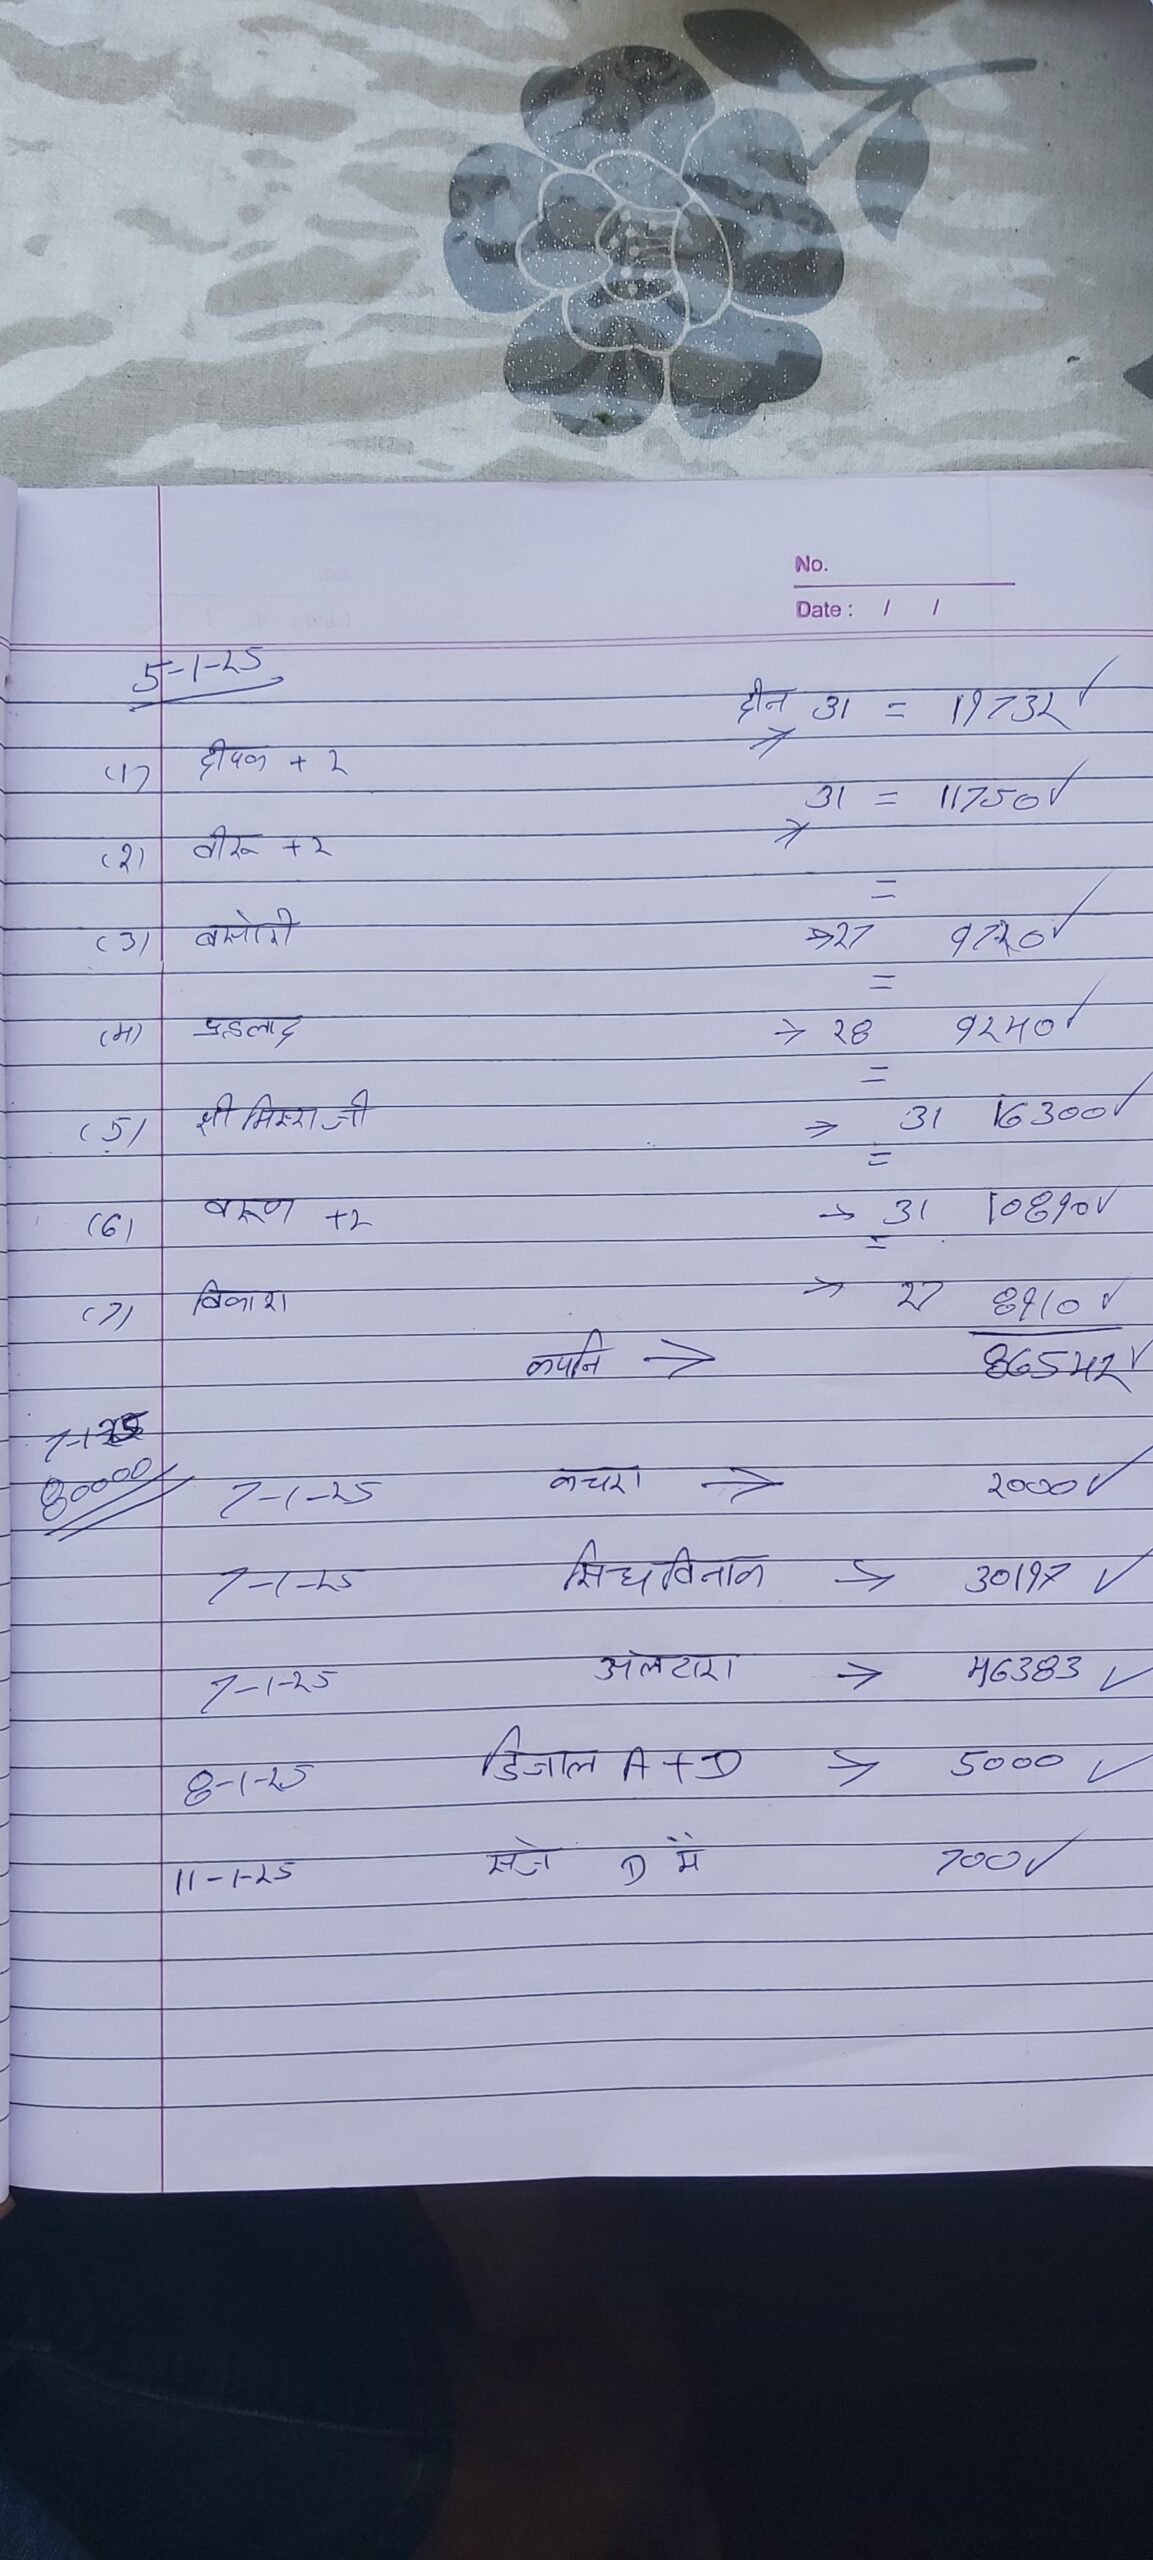 No.
Date : / /
5-1-25
दीन 31 = 19732 ✓
(1) दीपक + 2 →
31 = 11750 ✓
(2) वीरू + 2 →
=
(3) बसोरी → 27 9720 ✓
=
(4) प्रहलाद → 28 9240 ✓
=
(5) श्री मिश्रा जी → 31 16300 ✓
=
(6) वरूण +2 → 31 10890 ✓
=
(7) विकाश → 27 8910 ✓
→ 86542 ✓
7-1-25
80000
7-1-25 कचरा → 2000 ✓
7-1-25 सिध विनाक → 30197 ✓
7-1-25 अलटारा → 46383 ✓
8-1-25 डिजाल A+D → 5000 ✓
11-1-25 D में 700 ✓